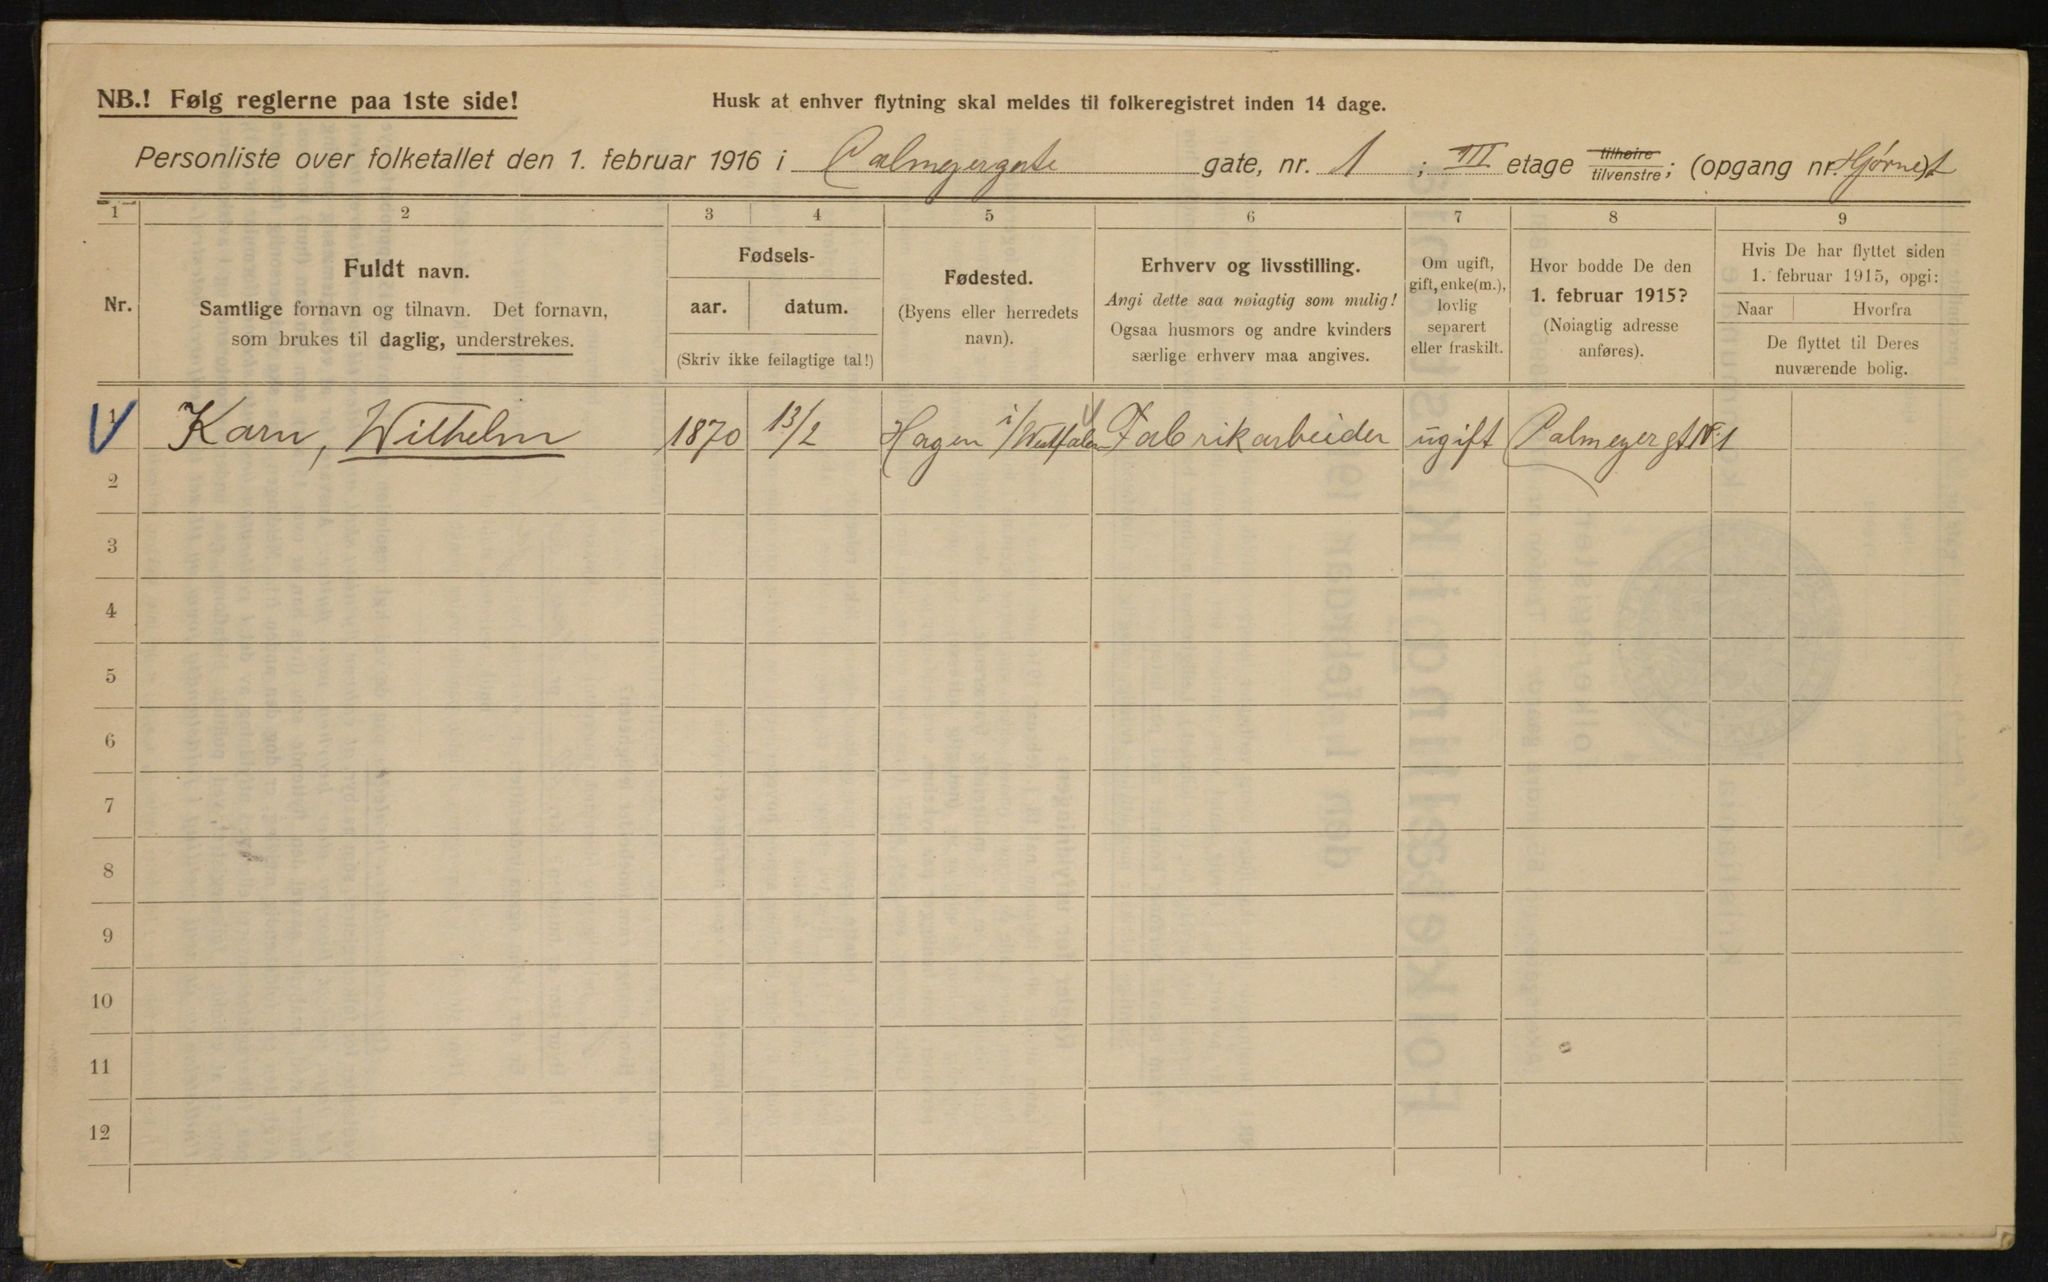 NB.! Følg reglerne paa 1ste side!
Husk at enhver flytning skal meldes til folkeregistret inden 14 dage.
Personliste over folketallet den 1. februar 1916 i Calmeyergate gate, nr. 1 ; III etage tilhøire tilvenstre; (opgang nr. Hjørne) 1
1 2 3 4 5 6 7 8 9
Nr.
Fuldt navn.
Samtlige fornavn og tilnavn. Det fornavn,
som brukes til daglig, understrekes.
Fødsels-
aar. datum.
(Skriv ikke feilagtige tal!)
Fødested.
(Byens eller herredets
navn).
Erhverv og livsstilling.
Angi dette saa nøiagtig som mulig!
Ogsaa husmors og andre kvinders
særlige erhverv maa angives.
Om ugift,
gift, enke(m.),
lovlig
separert
eller fraskilt.
Hvor bodde De den
1. februar 1915?
(Nøiagtig adresse
anføres).
Hvis De har flyttet siden
1. februar 1915, opgi:
Naar Hvorfra
De flyttet til Deres
nuværende bolig.
1 Karn, Wilhelm 1870 13/2 Hagen i/Westfalen Fabrikarbeider ugift Calmeyergt Nr. 1
2
3
4
5
6
7
8
9
10
11
12